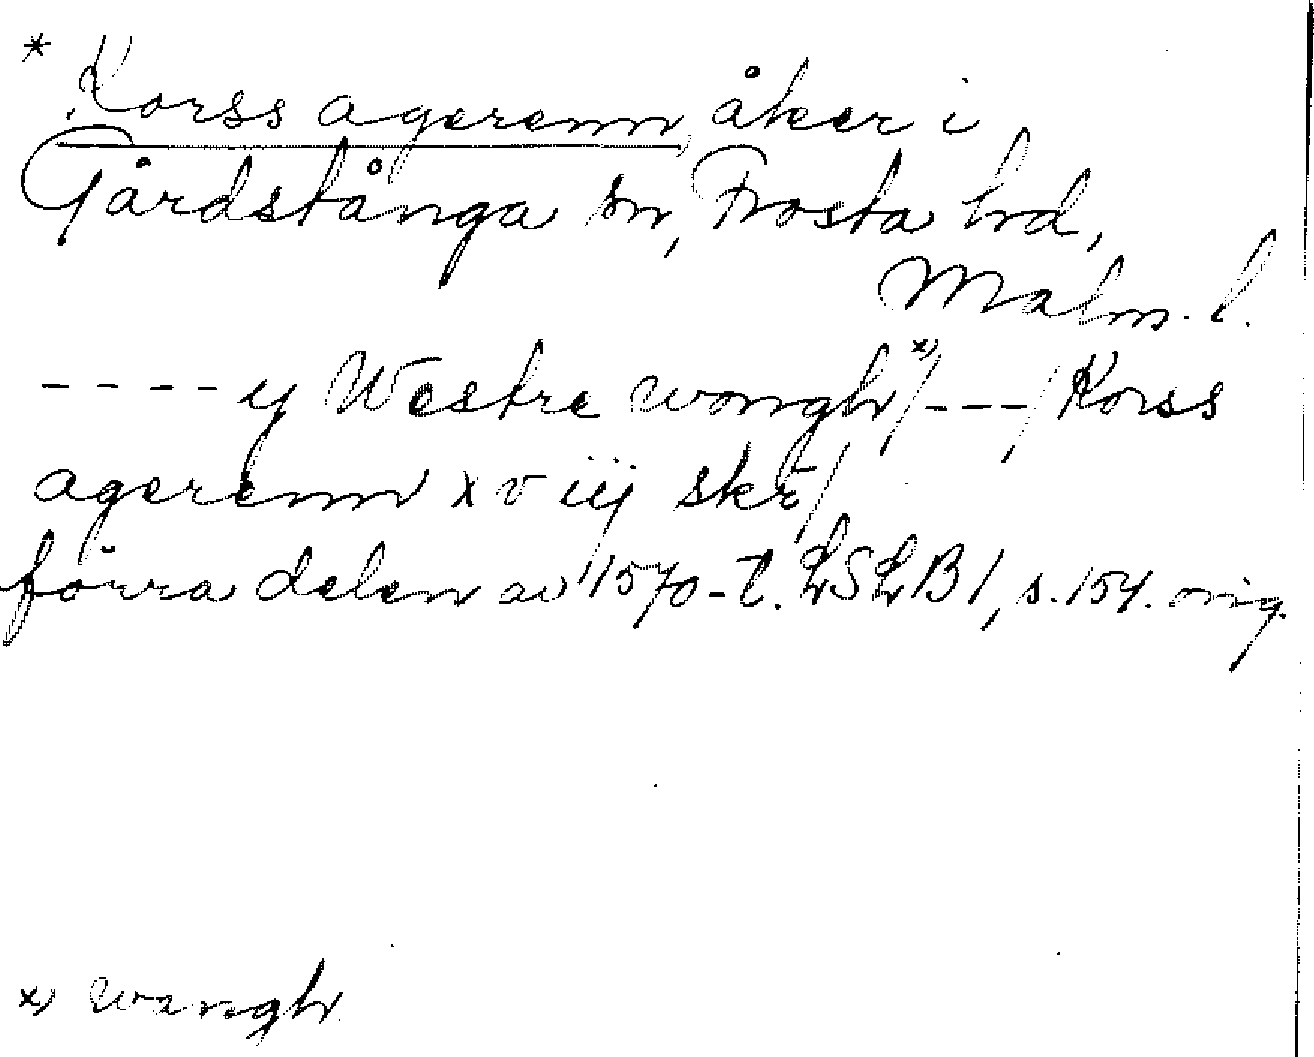 * Korss agerenn, åker i
Gårdstånga sn, Frosta hd,
Malm. l.
---- y Westre wongh x) / --- / Korss
agerenn xviij skr /
förra delen av 1570-t. LSLB 1, s. 154. orig.
x) wangh